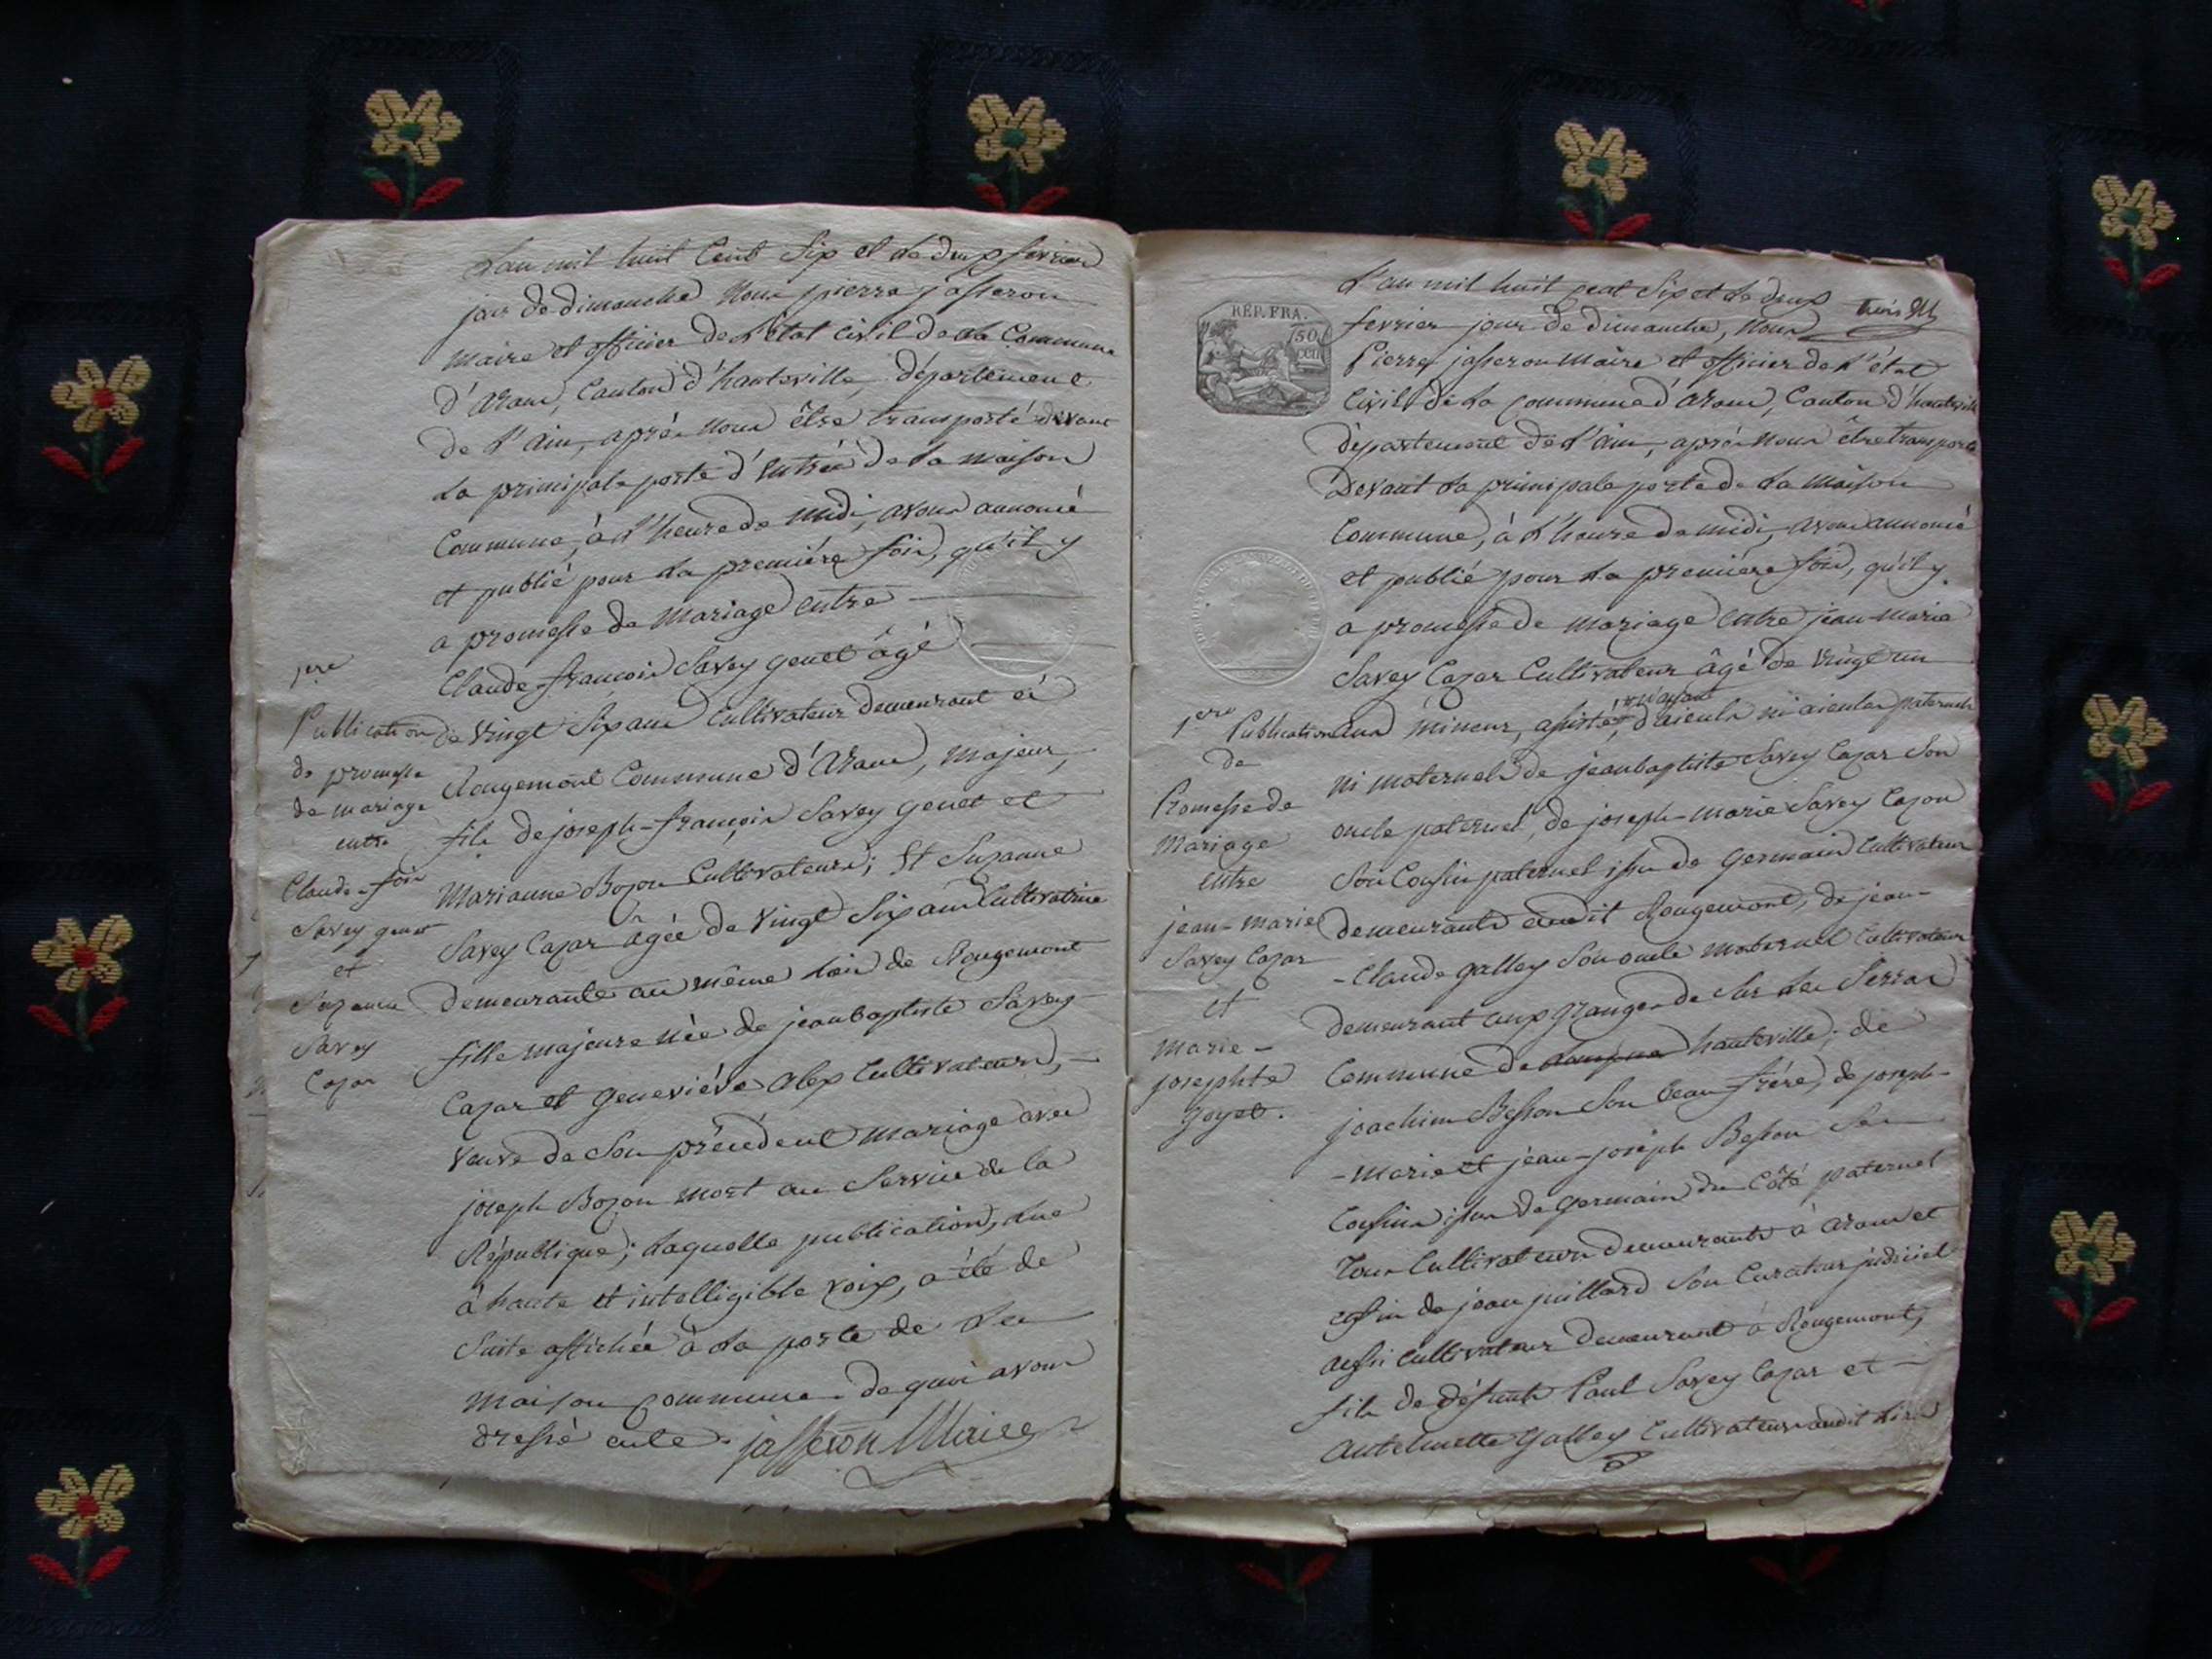 L'an mil huit Cent Six et le deux fevrier
jour de dimanche nous pierre jasseron
Maire et officier de l'état Civil de la Commune
d'Aranc, Canton d'hauteville, département
de l'ain, après nous être transporté devant
la principale porte d'entrée de la maison
Commune, à l'heure de midi, avons annoncé
et publié pour la première fois, qu'il y
a promesse de Mariage entre
Claude-françois Savey genet âgé
de vingt Six ans Cultivateur demeurant à
Rougemont Commune d'Aranc, Majeur,
fils de joseph-françois Savey genet et
Marianne Bozon Cultivateurs; Et Suzanne
Savey Cazar agée de vingt Six ans Cultivatrice
demeurante au même lieu de Rougemont
fille majeure née de jeanbaptiste Savey
Cazar et geneviève alex Cultivateurs,
veuve de Son précédent mariage avec
joseph Bozon mort au Service de la
République; laquelle publication, lue
à haute et intelligible voix, a été de
Suite affichée à la porte de la
maison commune. de quoi avons
dressé acte. jasseron Maire
1ere
Publication
de promesse
de mariage
entre
Claude-fois
Savey genet
et
Suzanne
Savey
Cazar
REP. FRA.
50
CEN
trois
L'an mil huit cent Six et le deux
fevrier jour de dimanche, Nous
Pierre jasseron Maire et officier de l'état
Civil de la commune d'Aranc, Canton d'hauteville
département de l'ain, après nous être transporté
Devant la principale porte de la Maison
Commune, à l'heure de midi, avons annoncé
et publié pour la première fois, qu'il y
a promesse de mariage entre jean-marie
Savey Cazar Cultivateur âgé de vingt un
n'ayant
ans mineur, assisté, d'aieuls ni aieules paternels
ni maternels de jeanbaptiste Savey Cazar Son
oncle paternel, de joseph-marie Savey Cazar
Son Cousin paternel issu de germain Cultivateurs
demeurants audit Rougemont, de jean-
-Claude galley Son oncle maternel Cultivateur
demeurant aux granges de Sur les Serrar
Commune de hauteville; de
joachim Besson Son beau-frère, de joseph-
-marie et jean-joseph Besson Ses
Cousins issus de germain du Côté paternel
Tous Cultivateurs demeurants à aranc et
enfin de jean juillard Son Curateur judiciel
aussi Cultivateur demeurant à Rougemont,
fils de défunts Paul Savey Cazar et
Antelmette Galley Cultivateurs audit lieu
1ere Publication
de
Promesse de
Mariage
entre
jean-marie
Savey Cazar
et
marie-
josephte
goyet.